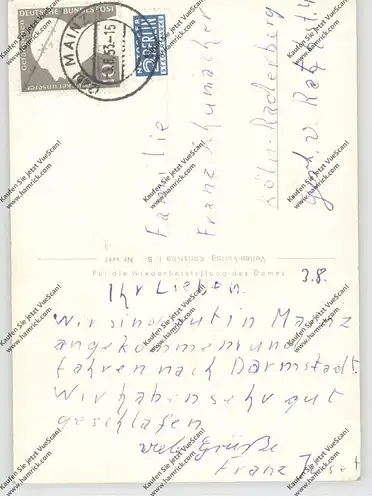 DEUTSCHE BUNDESPOST
MAINZ
NOTOPFER
2 BERLIN
STEUERMARKE
Familie
Franz Schumacher
Köln-Raderberg
Vetter-Verlag Karlsruhe i. B. Nr.
Für die Wiederherstellung des Domes
3.8.
Ihr Lieben.
Wir sind gut in Mainz
angekommen und
fahren nach Darmstadt.
Wir haben sehr gut
geschlafen
viele Grüße
Franz
Kaufen Sie jetzt VueScan!
www.hamrick.com